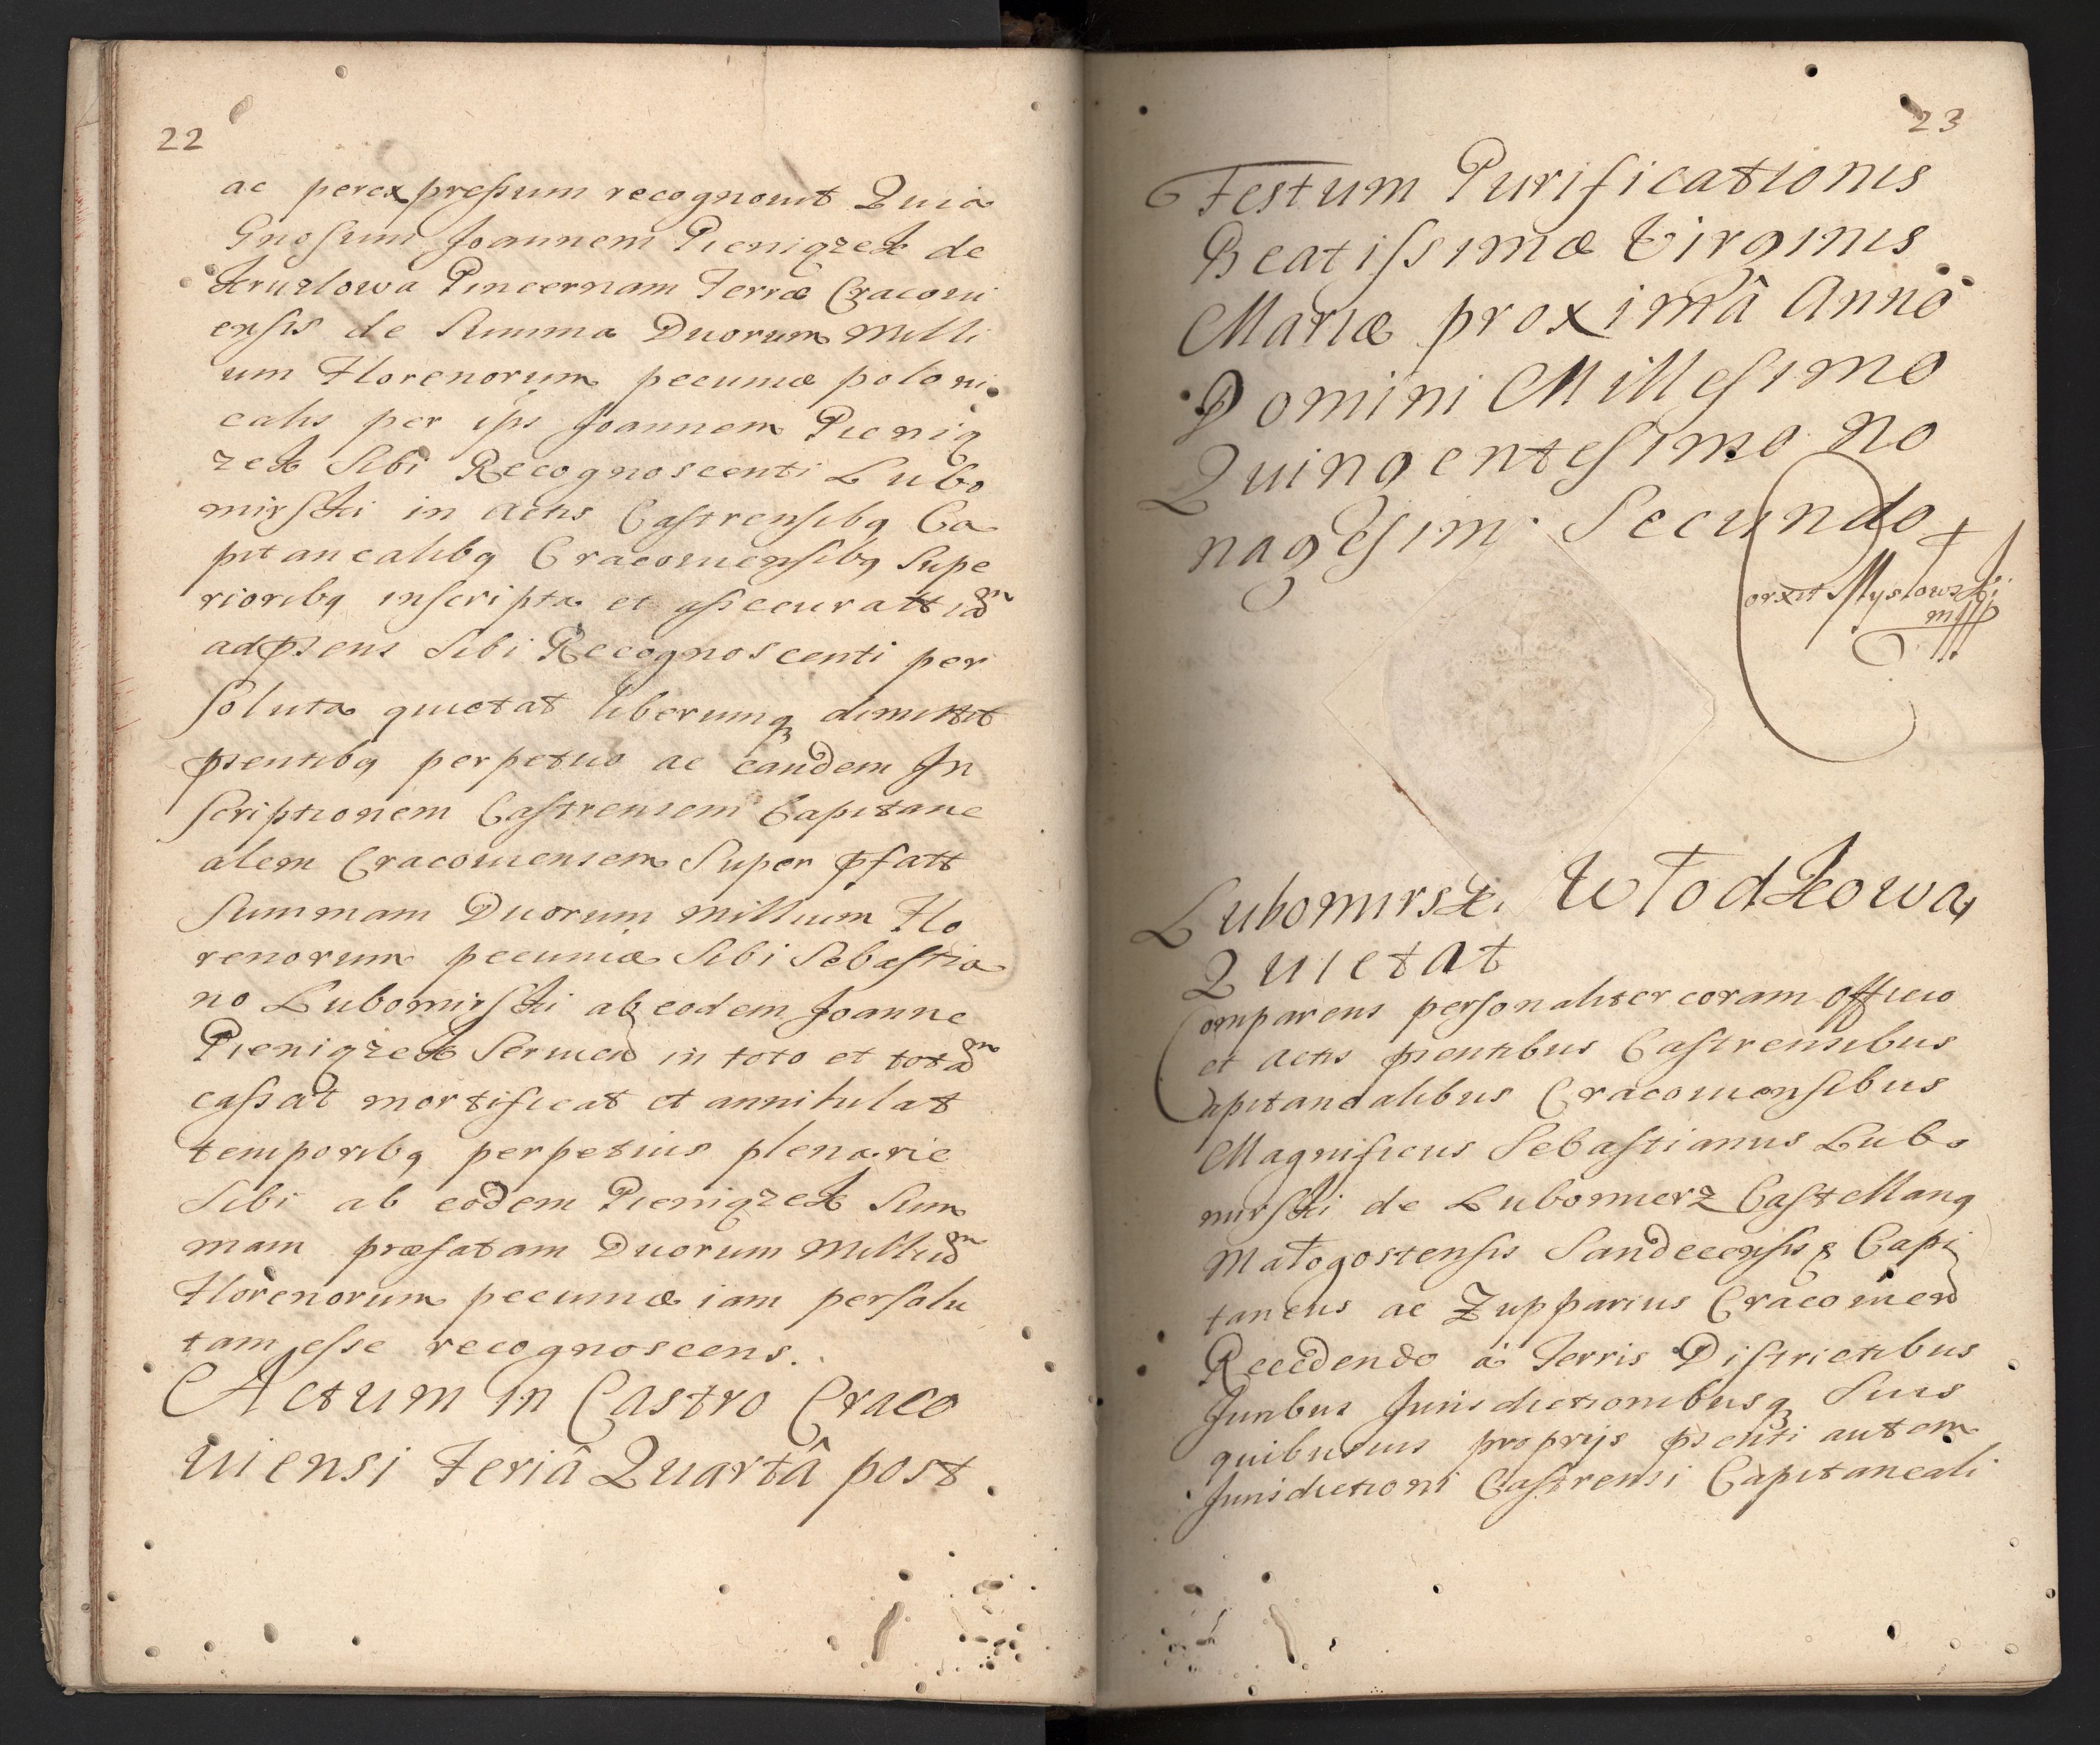 22
ac perexpressum recognouit Quia
Gnosum Joannem Pieniązek de
Kruzlowa Pincernam Terræ Cracoui
ensis de Summa Duorum Milli
um Florenorum pecuniæ poloni
calis per ips Joannem Pienią
zek Sibi Recognoscenti Lubo
mirski in Actis Castrensibq Ca
pitanealibq Cracouiensibq Supe
rioribq inscripta et assecuratt
adprens Sibi Recognoscenti per
soluta quietat liberumq dimittit
prentibq perpetuo ac eandem In
scriptionem Castrensem Capitane
alem Cracouiensem Super pfatt
Summam Duorum millium Flo
renorum pecuniæ Sibi Sebastia
no Lubomirski ab eodem Joanne
Pieniązek Seruien in toto et
cassat mortificat et annihilat
temporibq perpetuis plenarie
Sibi ab eodem Pieniązek Sum
mam præfatam Duorum Milliu
Florenorum pecuniæ iam persolu
tam esse recognoscens.
Actum in Castro Craco
uiensi Feriâ Quartâ post
23
Festum Purificationis
Beatissimæ Virginis
Mariæ proximâ Anno
Domini Millesimo
Quingentesimo No
nagesim. Secundo
Lubomirski Włodkowa
Quietat
Comparens personaliter coram Officio
et Actis prentibus Castrensibus
Capitanealibus Cracouiensibus
Magnificus Sebastianus Lubo
mirski de Lubomierz Castellanq
Małogostensis Sandecensisq Capi
taneus ac Zupparius Cracouien
Recedendo á Terris Districtibus
Juribus Jurisdictionibusq Suis
quibusuis proprijs prenti autem
Jurisdictioni Castrensi Capitaneali